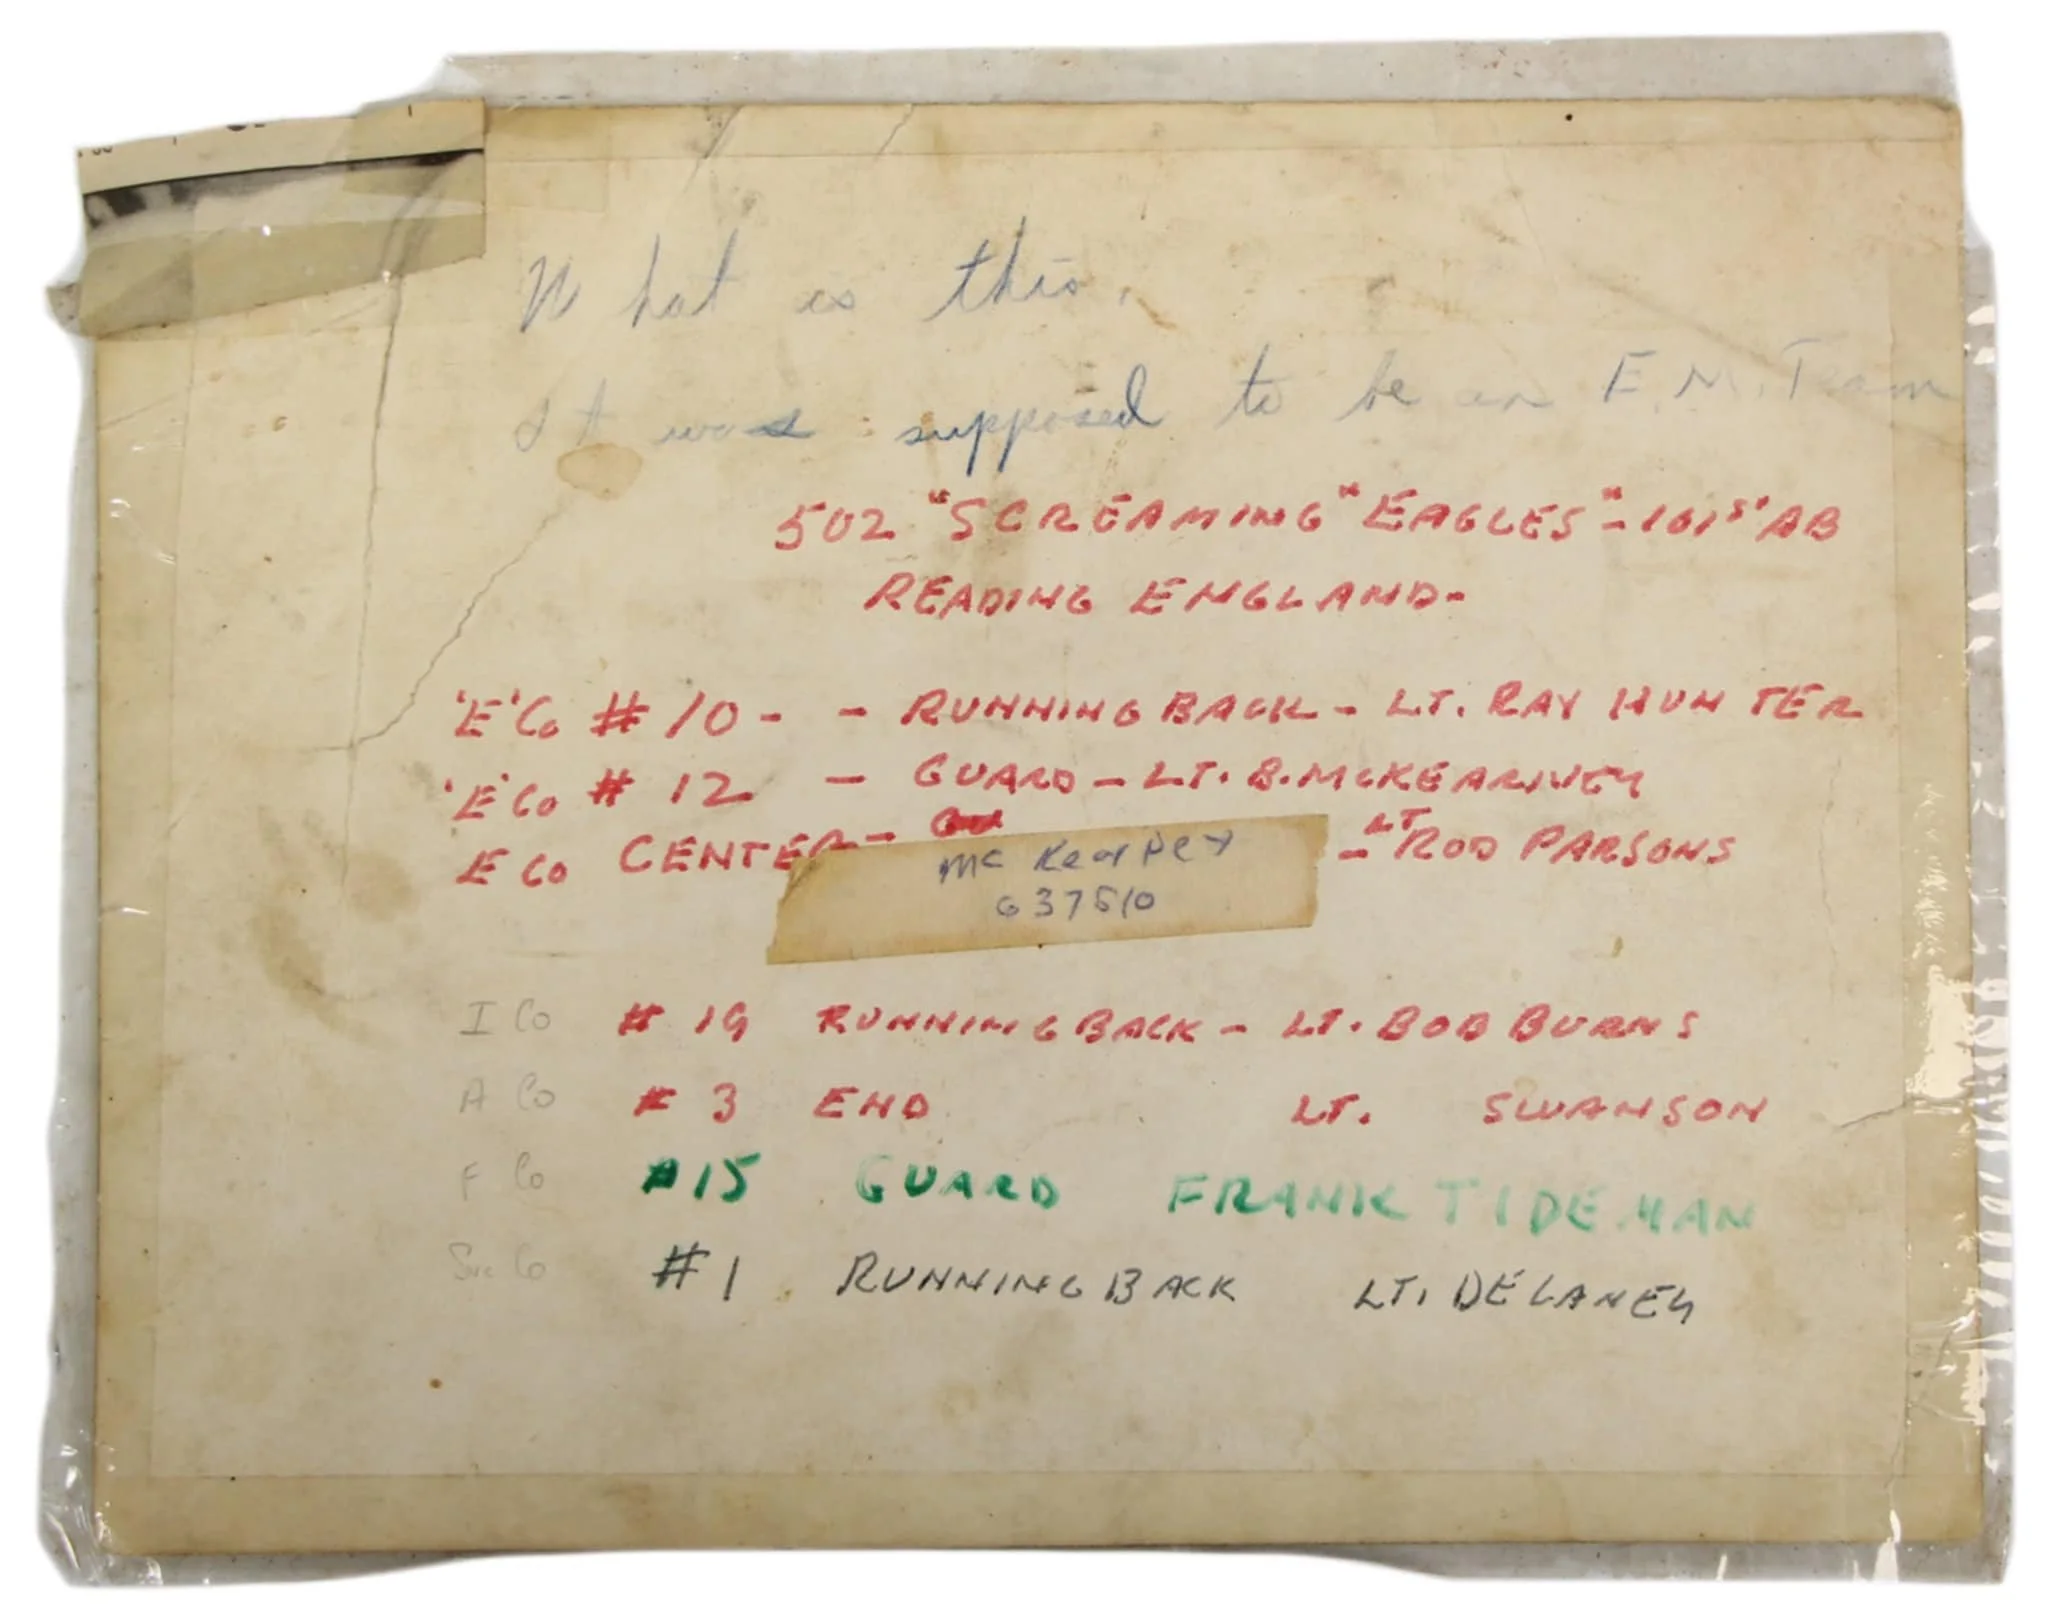 What is this.
It was supposed to be an E.M. Team
502 "SCREAMING" EAGLES" - 101ST AB
READING ENGLAND-
'E' Co # 10 - - RUNNING BACK - LT. RAY HUNTER
'E' Co # 12 - GUARD - LT. B. McKEARNEY
E Co CENTER - LT ROD PARSONS
Mc Kearney
637510
I Co # 19 RUNNING BACK - LT. BOB BURNS
A Co # 3 END LT. SWANSON
F Co #15 GUARD FRANK TIDEMAN
Svc Co #1 RUNNING BACK LT. DELANEY